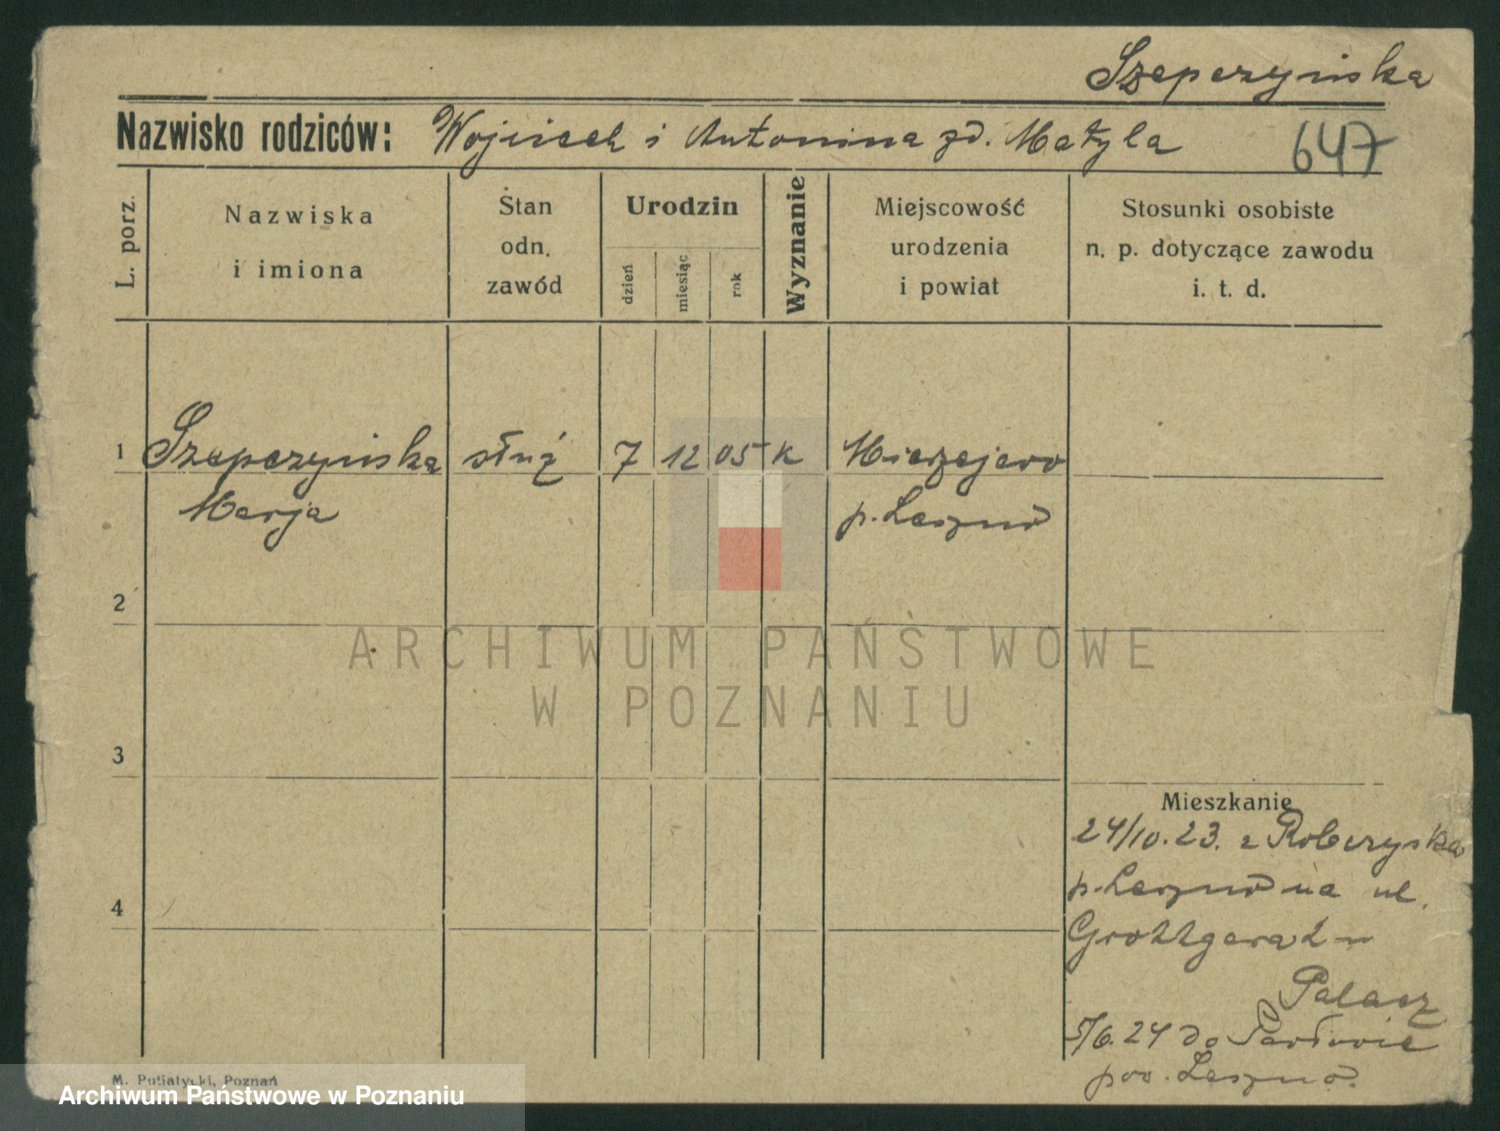 Szepczyńska
Nazwisko rodziców: Wojciech i Antonina zd. Matyla 647
L. porz.
Nazwiska
i imiona
Stan
odn.
zawód
Urodzin
dzień
miesiąc
rok
Wyznanie
Miejscowość
urodzenia
i powiat
Stosunki osobiste
n. p. dotyczące zawodu
i. t. d.
1 Szepczyńska służ 7 12 05 K Mierzejewo
Marja p. Leszno
2
ARCHIWUM PAŃSTWOWE
W POZNANIU
3
Mieszkanie
24/10.23. z Robczyska
p. Leszno na ul.
4
Grottgera 2
Palacz
5/6.24 do
pow. Leszno.
M. Putiatycki, Poznań
Archiwum Państwowe w Poznaniu